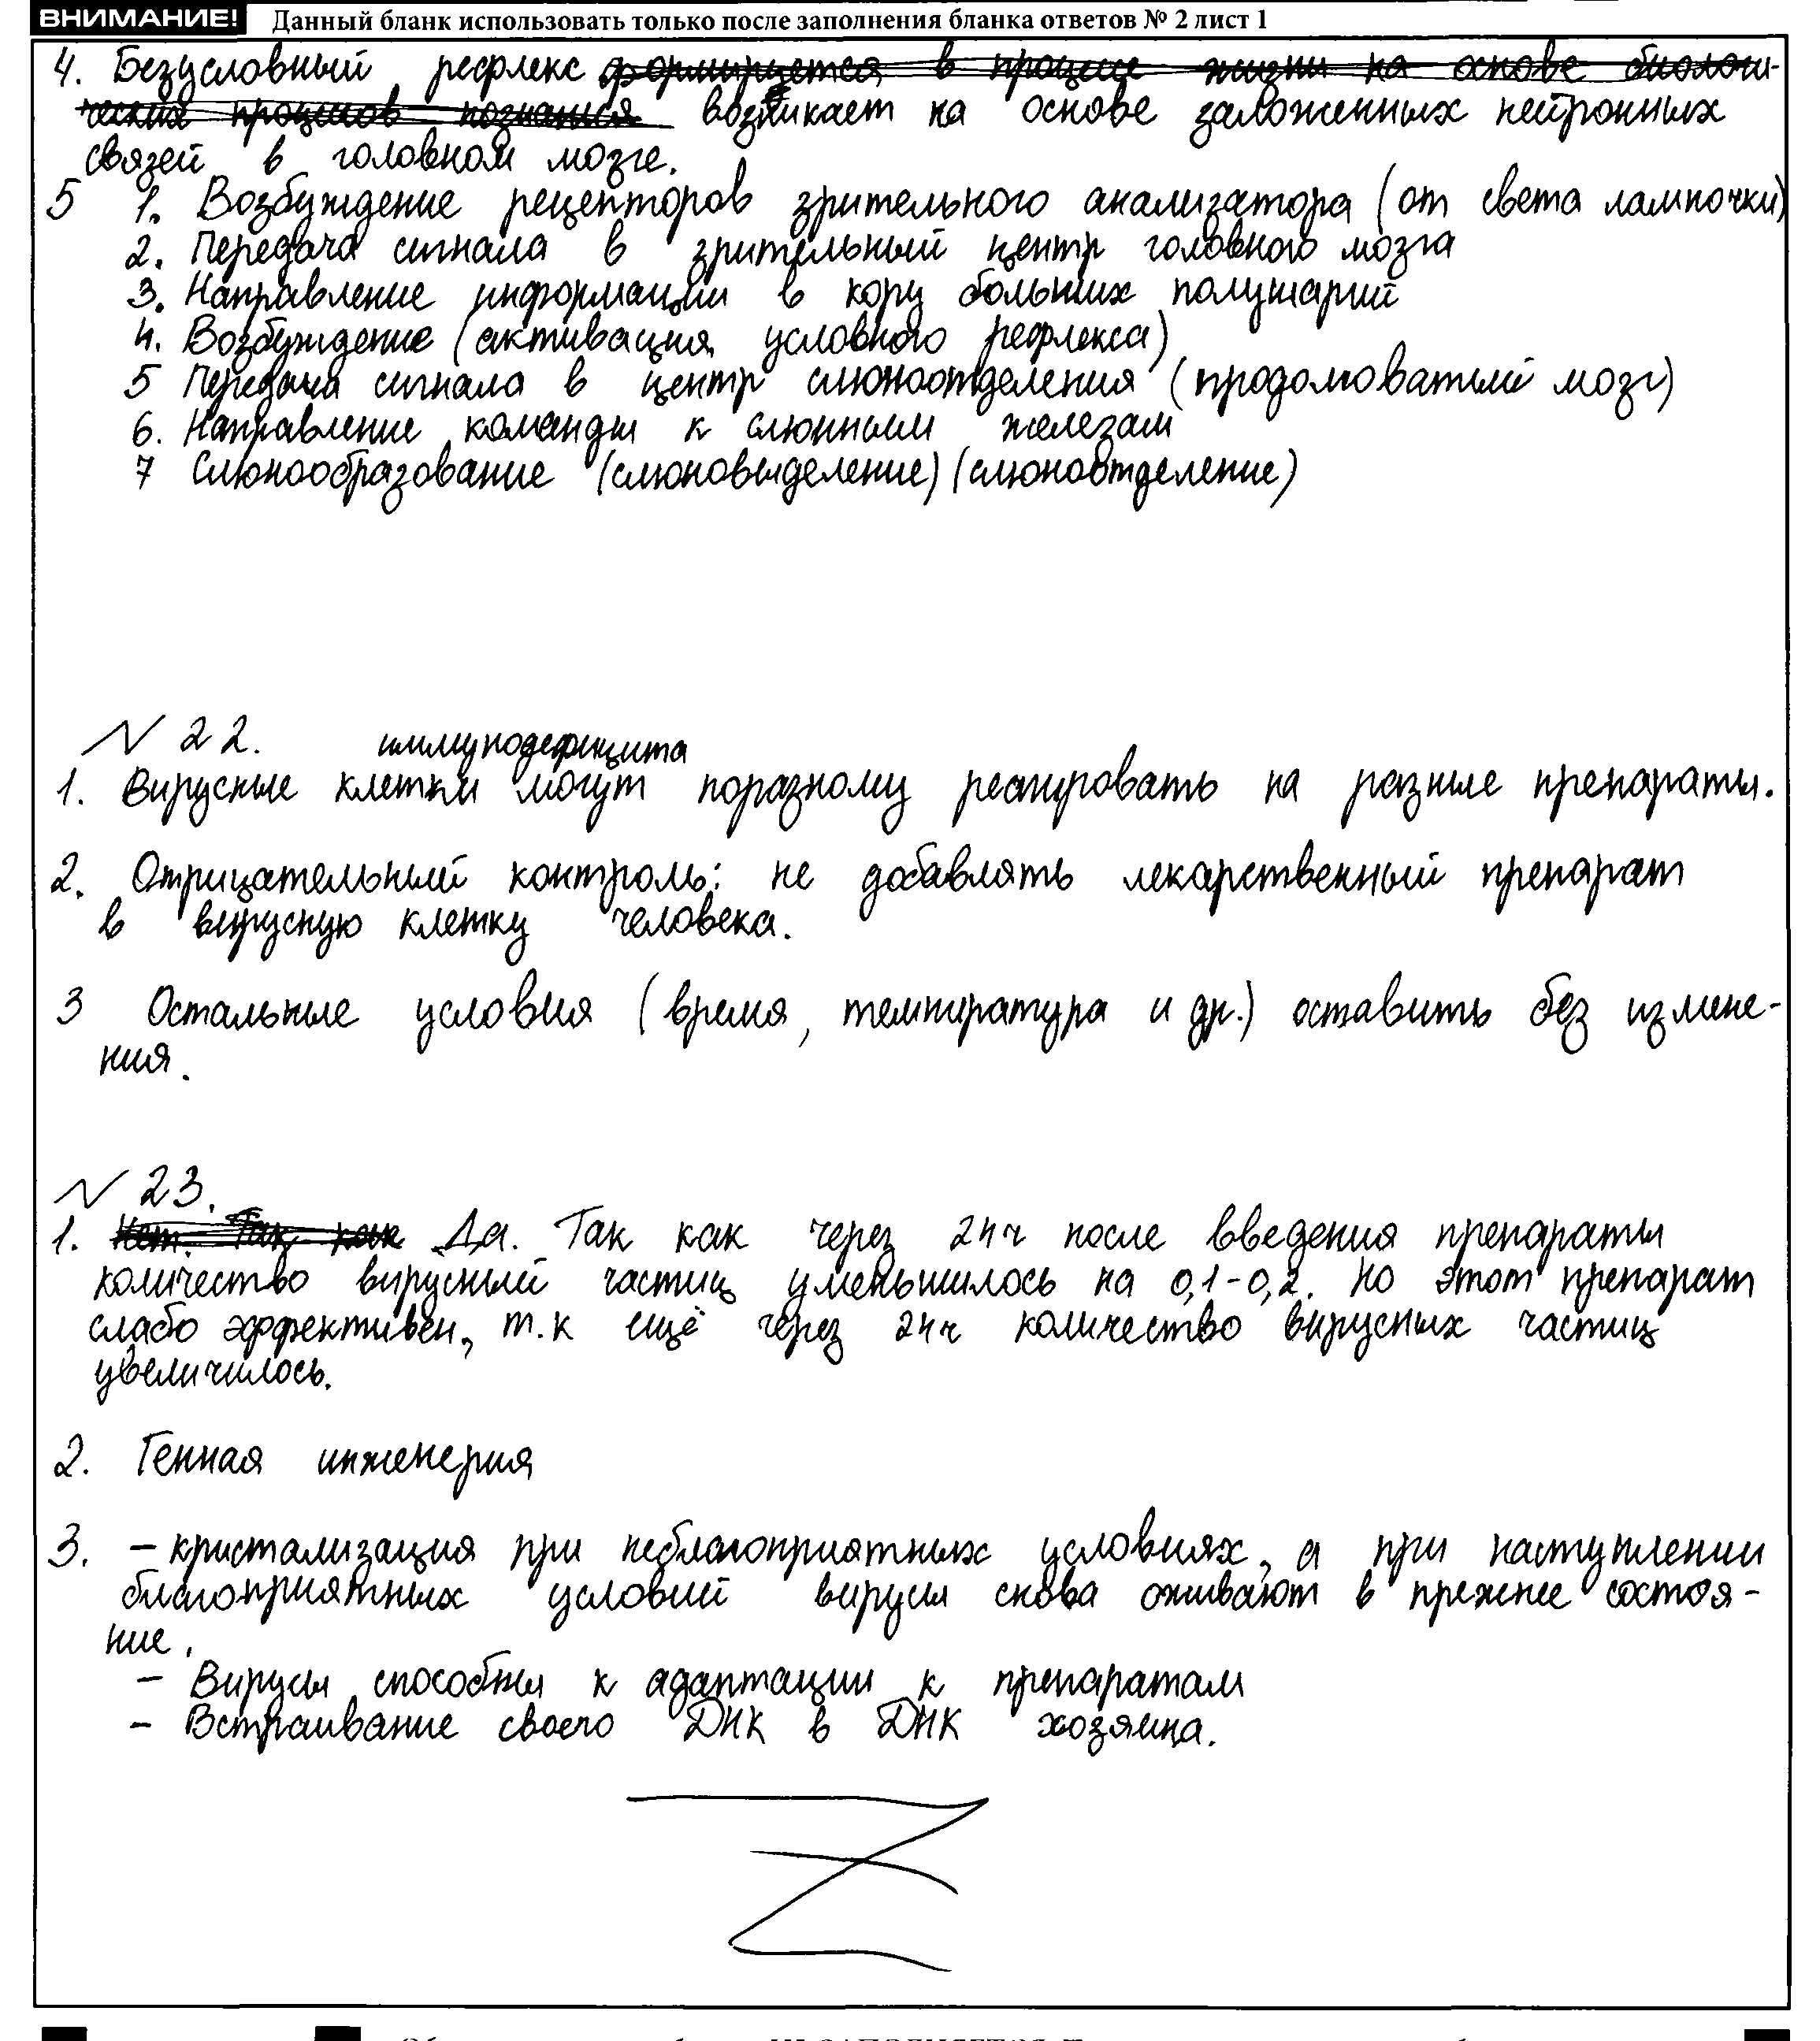 ВНИМАНИЕ! Данный бланк использовать только после заполнения бланка ответов № 2 лист 1
4. Безусловный рефлекс формируется в процессе жизни на основе биологи-
ческих процессов возникает на основе заложенных нейронных
связей в головном мозге.
5 1. Возбуждение рецепторов зрительного анализатора (от света лампочки)
2. Передача сигнала в зрительный центр головного мозга
3. Направление информации в кору больших полушарий
4. Возбуждение (активация условного рефлекса)
5 Передача сигнала в центр слюноотделения (продолговатый мозг)
6. Направление команды к слюнным железам
7 Слюнообразование (слюновыделение) (слюноотделение)
N 22.
иммунодефицита
1. Вирусные клетки могут поразному реагировать на разные препараты.
2. Отрицательный контроль: не добавлять лекарственный препарат
в вирусную клетку человека.
3 Остальные условия (время, температура и др.) оставить без измене-
ния.
N 23.
1. Нет. Так как Да. Так как через 24ч после введения препараты
количество вирусный частиц уменьшилось на 0,1-0,2. Но этот препарат
слабо эффективен, т.к ещё через 24ч количество вирусных частиц
увеличилось.
2. Генная инженерия
3. - кристализация при неблагоприятных условиях, а при наступлении
благоприятных условий вирусы снова оживают в прежнее состоя-
ние.
- Вирусы способны к адаптации к препаратам
- Встраивание своего ДНК в ДНК хозяина.
Z